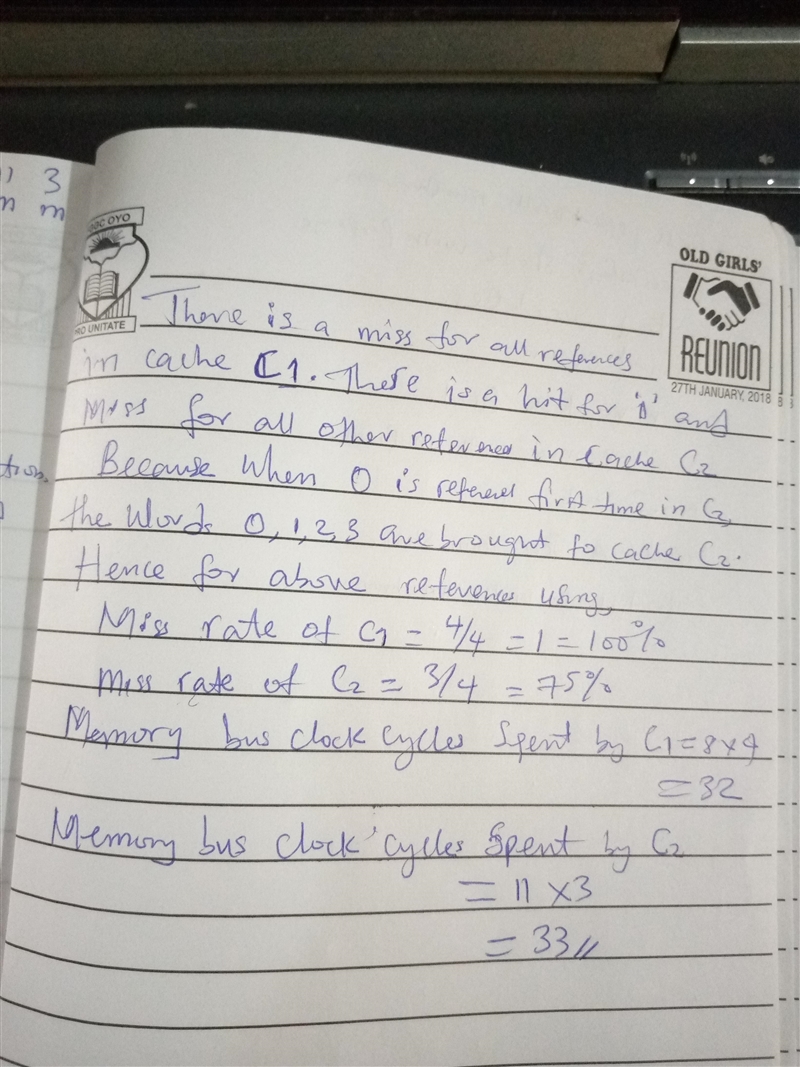 3
m
OGC OYO
PRO UNITATE
OLD GIRLS'
REUNION
27TH JANUARY, 2018
There is a miss for all references
in cache C1. There is a hit for '1' and
Miss for all other reference in Cache C2
Because when 0 is refered first time in C2,
the Words 0, 1, 2, 3 are brought to cache C2.
Hence for above references using,
Miss rate of C1 = 4/4 = 1 = 100%
Miss rate of C2 = 3/4 = 75%
Memory bus clock cycles Spent by C1 = 8 x 4
= 32
Memory bus clock cycles Spent by C2
= 11 x 3
= 33 //